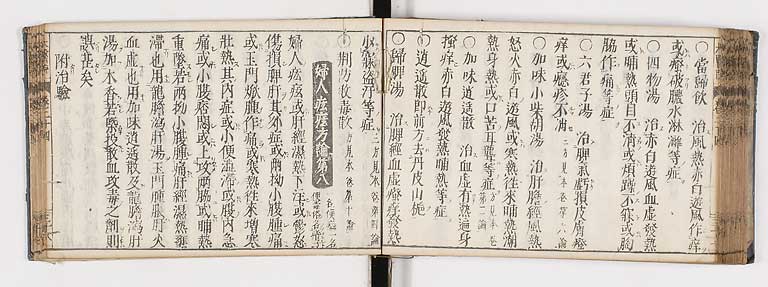 ○當歸飲　治風熱赤白遊風作痒
或瘡破膿水淋瀝等症
○四物湯　治赤白遊風血虛發熱
或晡熱頭目不清或煩躁不寐或胸
脇作痛等症
○六君子湯　治脾氣虧損皮膚瘡
痒或癮疹不消
○加味小柴胡湯　治肝膽經風熱
怒火赤白遊風或寒熱往來晡熱潮
熱身熱或口苦耳聾等症
○加味逍遙散　治血虛有熱遍身
搔痒赤白遊風發熱晡熱等症
○逍遙散即前方去丹皮山梔
○歸脾湯　治脾經血虛瘡疹發熱
盜汗等症
○荊防敗毒散
婦人
婦人
或肝經濕熱下注或鬱怒
傷損脾肝其外症或兩拗小腹腫痛
或玉門焮腫作痛或寒熱往來增寒
壯熱其內症或小便澁滯或腹內急
痛或小腹痞悶或上攻兩脇或晡熱
重墜若兩拗小腹腫痛肝經濕熱壅
滯也用龍膽瀉肝湯玉門腫脹肝火
血虛也用加味逍遙散及龍膽瀉肝
湯加木香若概投散血攻毒之劑則
誤甚矣
附治驗